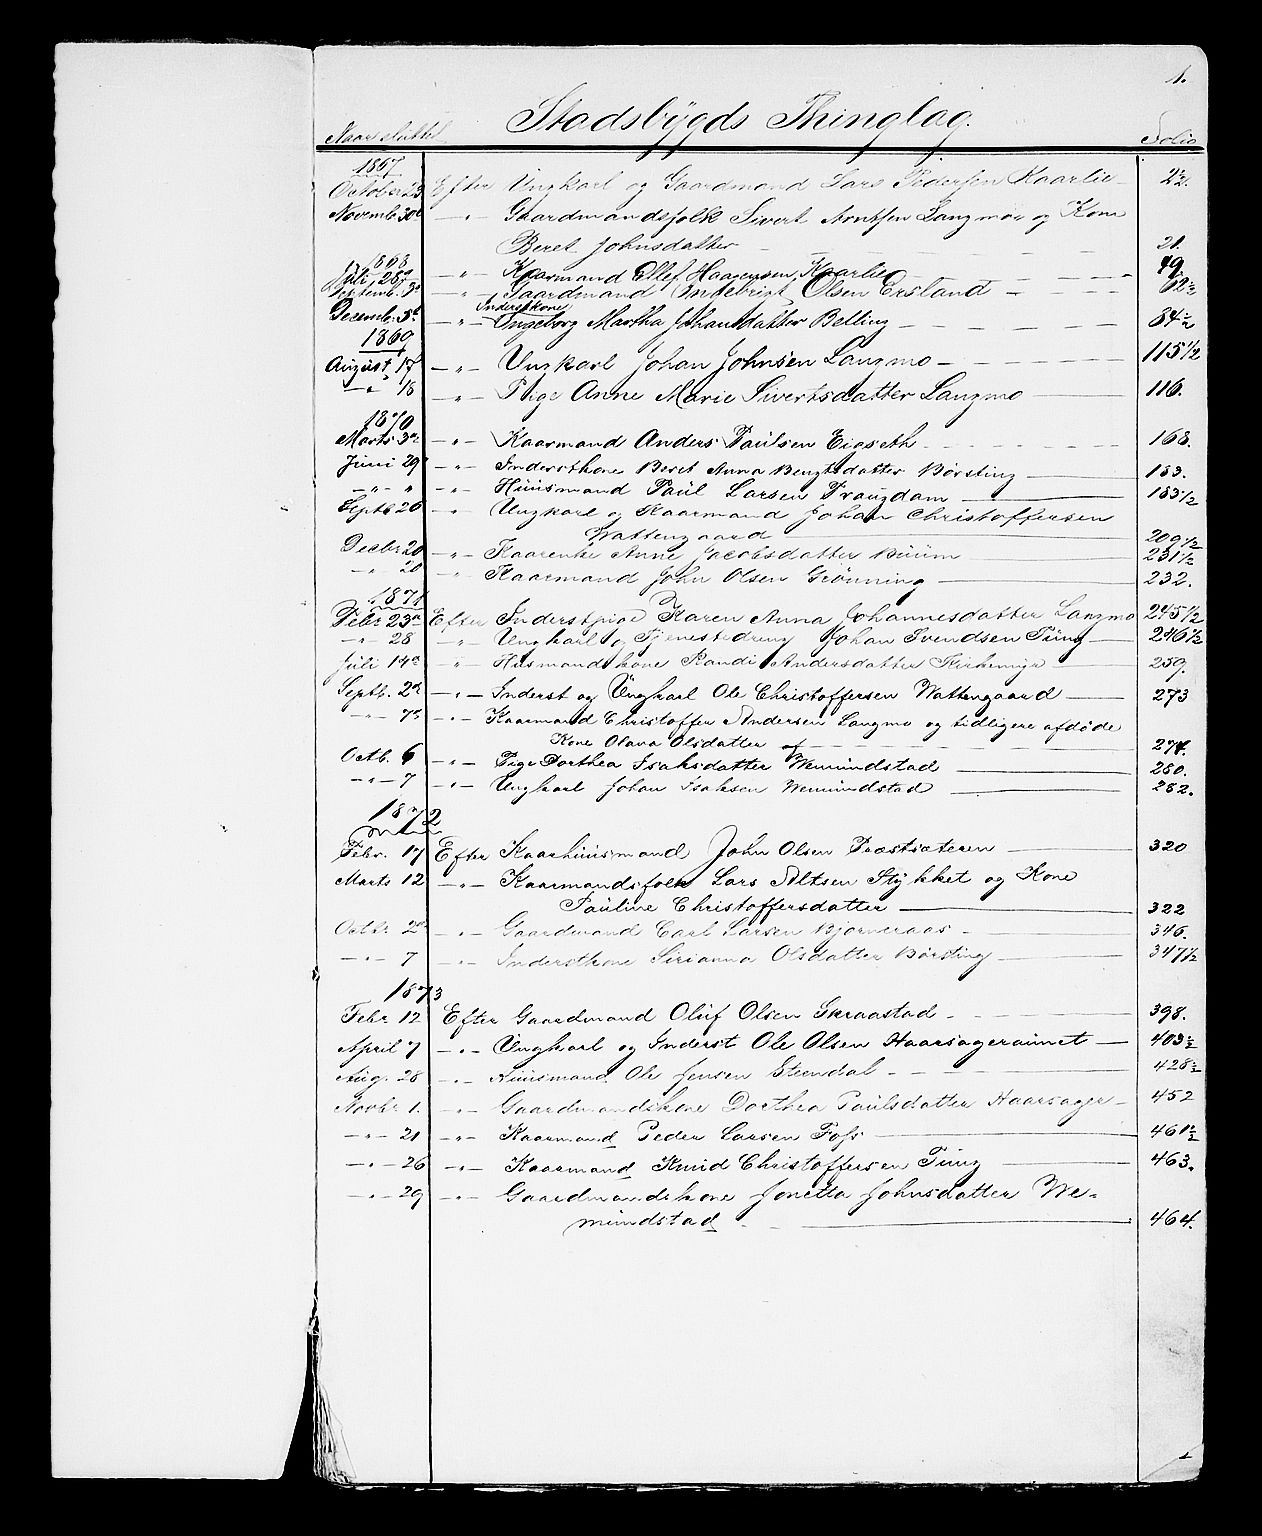 1.
Stadsbÿgds Thinglag.
Naar sluttet Folio
1867
October 23 Efter Ungkarl og Gaardmand Lars Pedersen Kaarlie 2½.
Novemb. 30te — " — Gaardmandsfolk Sivert Arntsen Langmo og Kone
Beret Johnsdatter 21.
1868
Juli 28de — " — Kaarmand Ellef Haagensen Kaarlie 49.
Septemb. — " — Gaardmand Ingebrigt Olsen Ersland 62½
Inderstkone
Decemb. 5te — " — Ingeborg Martha Johansdatter Belling 84½
1869
August 17 — " — Ungkarl Johan Johnsen Langmo 115½
— " — 18 — " — Pige Anne Marie Sivertsdatter Langmo 116.
1870
Marts 3de — " — Kaarmand Anders Paulsen Eigseth 168.
Juni 29 — " — Inderstkone Beret Anna Bengtsdatter Børsting 183.
— " — " — " — Huusmand Paul Larsen Fraugdam 183½
Septb. 26 — " — Ungkarl og Kaarmand Johan Christoffersen
Wattengaard 209½
Decbr 20 — " — Kaarenke Anne Jacobsdatter Buum 231½
— " — 20 — " — Kaarmand John Olsen Grønning 232.
1871
Febr 23de Efter Inderstpige Karen Anna Johannesdatter Langmo 245½
— " — 28 — " — Ungkarl og Tjenestedreng Johan Svendsen Ting 246½
Juli 14de — " — Husmandskone Randi Andersdatter 259.
Septb. 2de — " — Inderst og Ungkarl Ole Christoffersen Wattengaard 273
— " — 7de — " — Kaarmand Christoffer Andersen Langmo og tidligere afdøde
Kone Olava Olsdatter 274.
Octb. 6 — " — Pige Dorthea Isaksdatter Wemundstad 280.
— " — 7 — " — Ungkarl Johan Isaksen Wemundstad 282.
1872
Febr. 17 Efter Kaarhuusmand John Olsen Præstsæteren 320
Marts 12 — " — Kaarmandsfolk Lars Altsen Stykket og Kone
Pauline Christoffersdatter 322
Octbr 2de — " — Gaardmand Carl Larsen Bjørneraas 346.
— " — 7 — " — Inderstkone Sirianna Olsdatter Børsting 347½
1873
Febr 12 Efter Gaardmand Oluf Olsen Skraastad 398.
April 7 — " — Ungkarl og Inderst Ole Olsen Haarsageraunet 403½
Aug. 28 — " — Huusmand Ole Jensen Steendal 428½
Novbr 1. — " — Gaardmandskone Dorthea Paulsdatter Haarsager 452
— " — 21 — " — Kaarmand Peder Larsen Foss 461½
— " — 26 — " — Kaarmand Knud Christoffersen Ting 463.
— " — 29 — " — Gaardmandskone Jonetta Johnsdatter We-
mundstad 464.